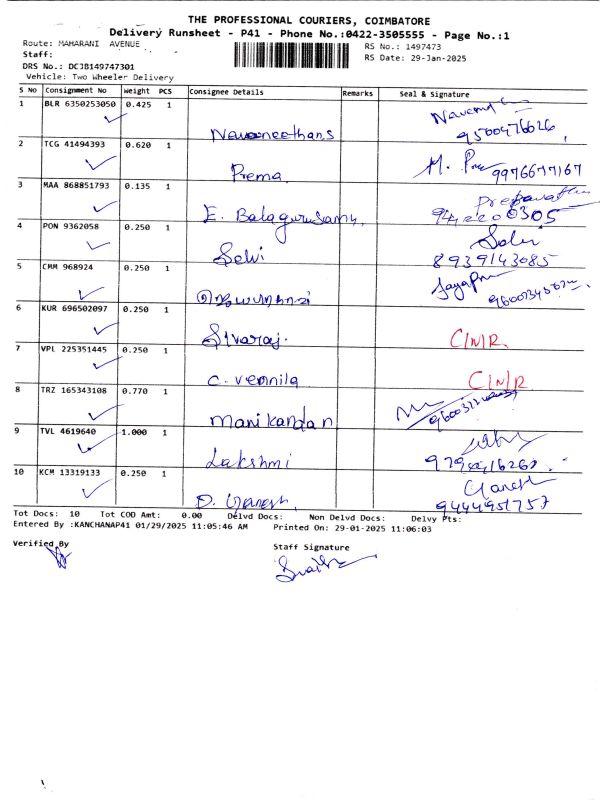 THE PROFESSIONAL COURIERS, COIMBATORE
Delivery Runsheet - P41 - Phone No.:0422-3505555 - Page No.:1
Route: MAHARANI AVENUE RS No.: 1497473
Staff: RS Date: 29-Jan-2025
DRS No.: DCJB149747301
Vehicle: Two Wheeler Delivery
S No Consignment No Weight PCS Consignee Details Remarks Seal & Signature
1 BLR 6350253050 0.425 1
Navaneethan.s 9500476026
2 TCG 41494393 0.620 1
Prema 9976677167
3 MAA 868851793 0.135 1
E. Balagurusamy
4 PON 9362058 0.250 1
Selvi 8939143085
5 CMM 968924 0.250 1 Jaya
6 KUR 696502097 0.250 1
Sivaraj. C/N/R.
7 VPL 225351445 0.250 1
C. vennila C/N/R
8 TRZ 165343108 0.770 1
manikandan
9 TVL 4619640 1.000 1
Lakshmi
10 KCM 13319133 0.250 1 Ganesh
D. Ganesh. 9444951757
Tot Docs: 10 Tot COD Amt: 0.00 Delvd Docs: Non Delvd Docs: Delvy Pts:
Entered By :KANCHANAP41 01/29/2025 11:05:46 AM Printed On: 29-01-2025 11:06:03
Verified By Staff Signature